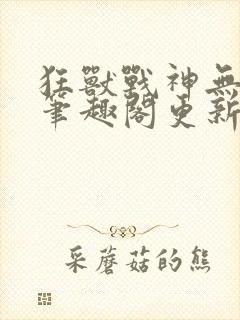 狂獸戰神無
筆趣閣更新
采蘑菇的熊